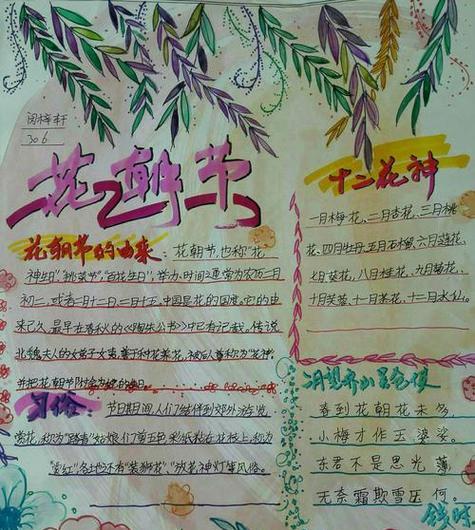 闵梓轩
306
花朝节
花朝节的由来：花朝节,也称"花
神生日""挑菜节","百花生日",举办时间通常为农历二月
初二,或者二月十二、二月十五。中国是花的国度,它的由
来已久,最早在春秋的《陶朱公书》中已有记载,传说
北魏夫人的女弟子女夷,善于种花养花,被后人尊称为"花神"
并把花朝节附会为她的节日
习俗：节日期间,人们结伴到郊外游览
赏花,称为"踏青",姑娘们剪五色彩纸粘在花枝上,称为
"赏红"各地还有"装狮花""放花神灯"等风俗。
十二花神
一月梅花、二月杏花、三月桃
花、四月牡丹、五月石榴、六月莲花
七月葵花、八月桂花、九月菊花、
十月芙蓉、十一月茶花、十二月水仙。
春到花朝花未多
小梅才作玉婆娑。
东君不是思光薄
无奈霜欺雪压何。